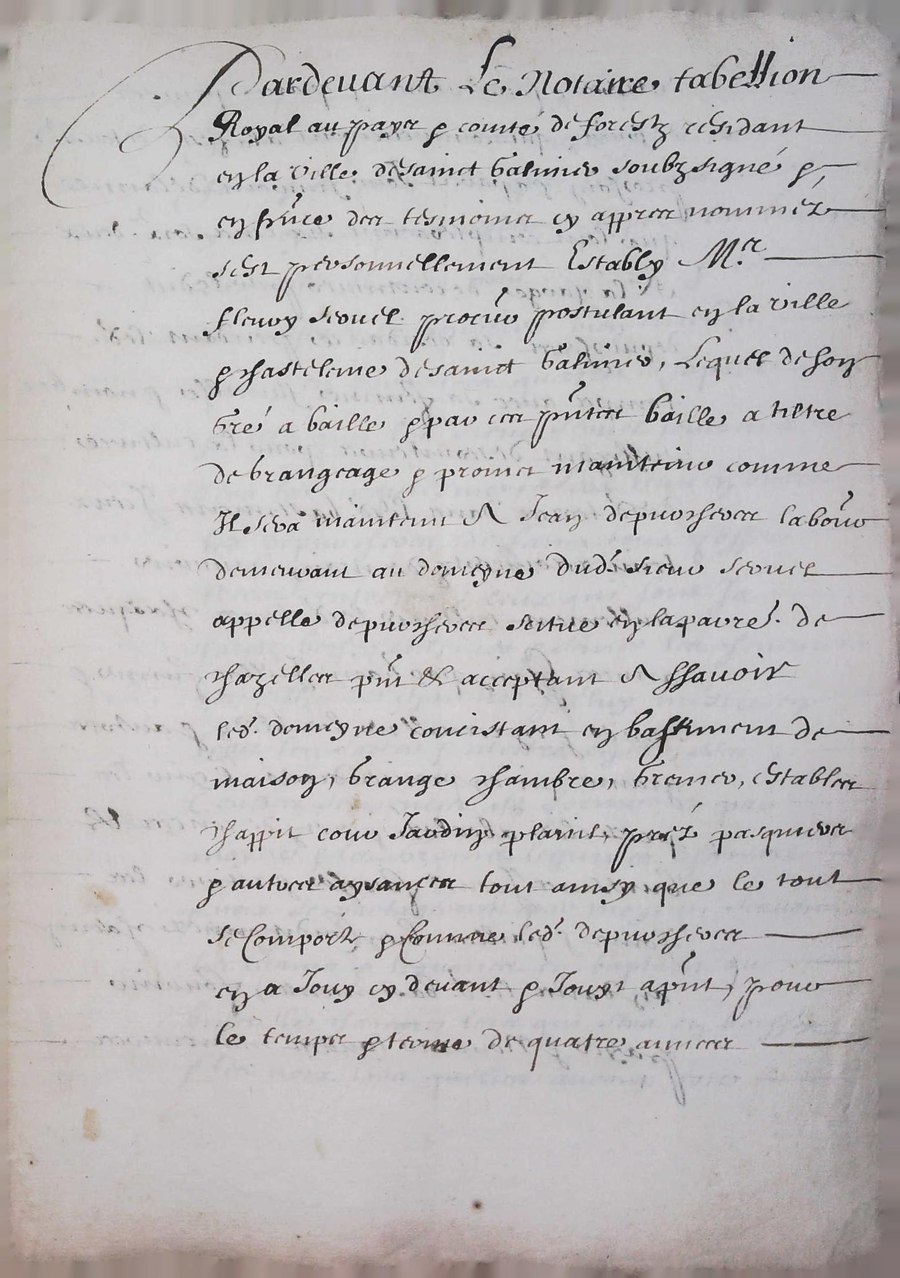 Pardevant Le Notaire tabellion
Royal au payes & comté de forestz residant
en la ville de sainct Galmier soubzsigné &
en pñce des tesmoins cy appres nommez
sest personnellement Estably Mr.
fleury procur postulant en la ville
& chastelenie de sainct Galmier, Lequel de son
Gré a baillé & par ces pñtes baille a tiltre
de Grangeage & promet maintenir comme
Il sera maintenu A Jean labour
demeurant au domeyne dud. sieur
appellé situé en la parre. de
chazelles pñt & acceptant A Sçavoir
led. domeyne concistant en bastiment de
maison, Grange chambre, Grenier, estables
chappit cour Jardin plassit, préz pasquiers
& autres aysances tout ainsy que le tout
se Comporte & Comme led.
en a Jouy cy devant & Jouyt apñt, pour
le temps & terme de quatre annees